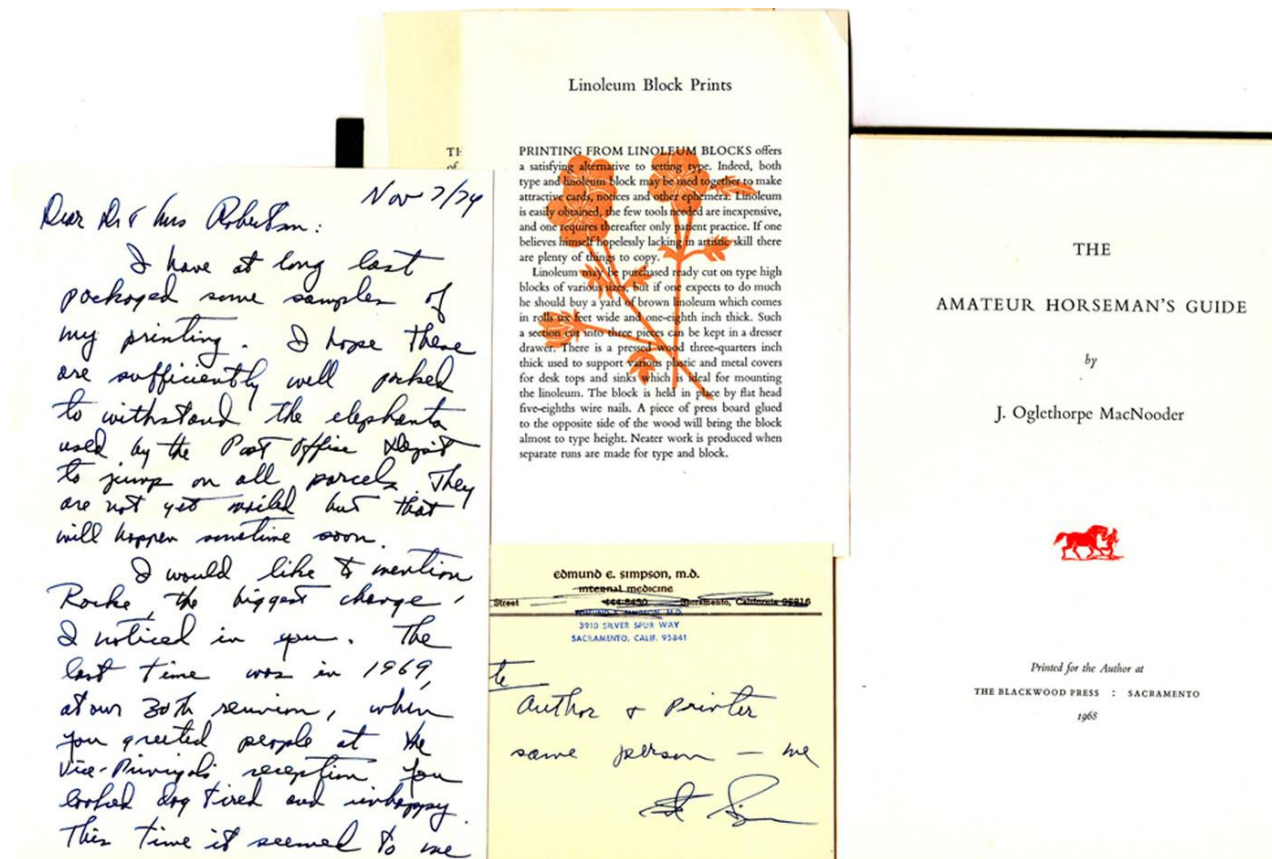 Nov 7/74
Dear Dr & Mrs Robertson:
I have at long last
packaged some samples of
my printing. I hope these
are sufficiently well packed
to withstand the elephants
used by the Post Office Dep't
to jump on all parcels. They
are not yet mailed but that
will happen sometime soon.
I would like to mention
Rocke, the biggest change
I noticed in you. The
last time was in 1969,
at our 30th reunion, when
you greeted people at the
Vice-Principal's reception you
looked dog tired and unhappy.
This time it seemed to me
TH
of
Linoleum Block Prints
PRINTING FROM LINOLEUM BLOCKS offers
a satisfying alternative to setting type. Indeed, both
type and linoleum block may be used together to make
attractive cards, notices and other ephemera. Linoleum
is easily obtained, the few tools needed are inexpensive,
and one requires thereafter only patient practice. If one
believes himself hopelessly lacking in artistic skill there
are plenty of things to copy.
Linoleum may be purchased ready cut on type high
blocks of various sizes, but if one expects to do much
he should buy a yard of brown linoleum which comes
in rolls six feet wide and one-eighth inch thick. Such
a section cut into three pieces can be kept in a dresser
drawer. There is a pressed wood three-quarters inch
thick used to support various plastic and metal covers
for desk tops and sinks which is ideal for mounting
the linoleum. The block is held in place by flat head
five-eighths wire nails. A piece of press board glued
to the opposite side of the wood will bring the block
almost to type height. Neater work is produced when
separate runs are made for type and block.
edmund e. simpson, m.d.
internal medicine
Street 444-8450 Sacramento, California 95816
EDMUND E. SIMPSON, M.D.
3910 SILVER SPUR WAY
SACRAMENTO, CALIF. 95841
te
Author & Printer
same person — me
THE
AMATEUR HORSEMAN'S GUIDE
by
J. Oglethorpe MacNooder
Printed for the Author at
THE BLACKWOOD PRESS : SACRAMENTO
1968